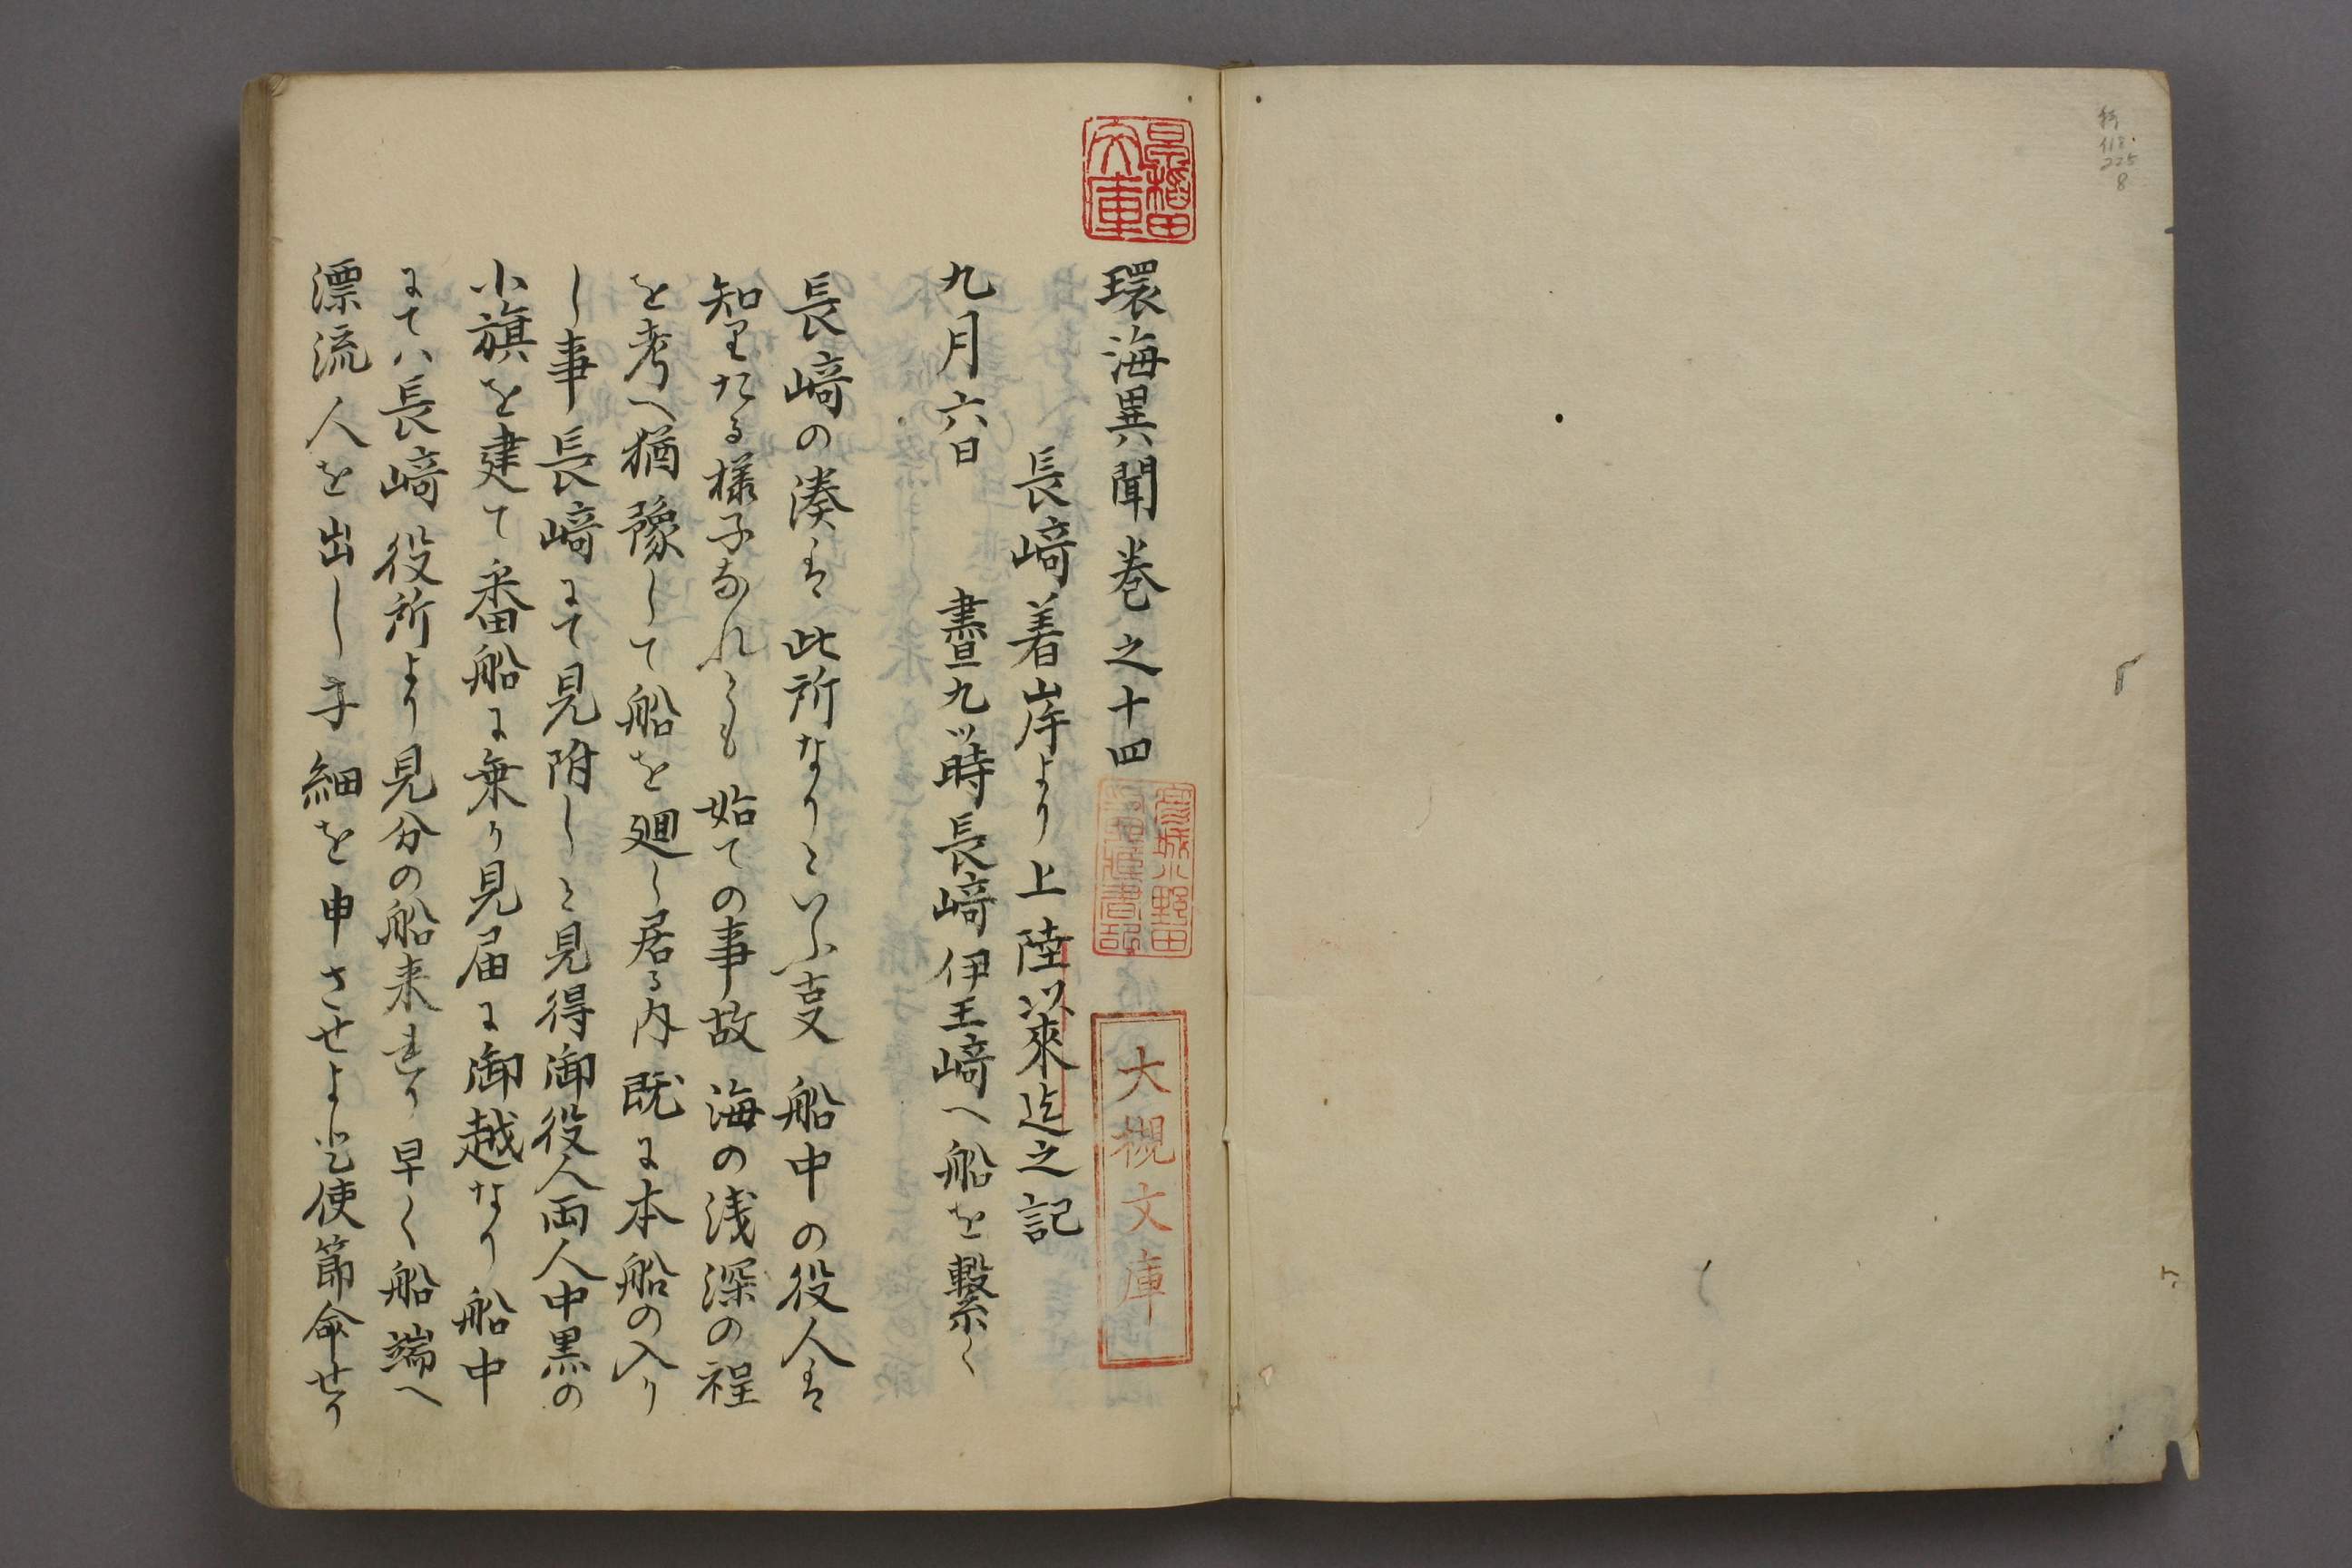 環海異聞巻之十四
長﨑着岸より上陸以來迄之記
九月六日　晝九ツ時長﨑伊王﨑へ船を繋く
長﨑の湊ハ此所なりといふ支　船中の役人ハ
知りたる様子なれとも始ての事故海の浅深の程
を考へ猶豫して船を廻し居る内既に本船の入り
し事長﨑にて見附しと見得御役人両人中黒の
小旗を建て番船に乗り見届に御越なり船中
にてハ長﨑役所より見分の船来れり早く船端へ
漂流人を出し子細を申させよと使節命せり
大槻文庫
118
225
8